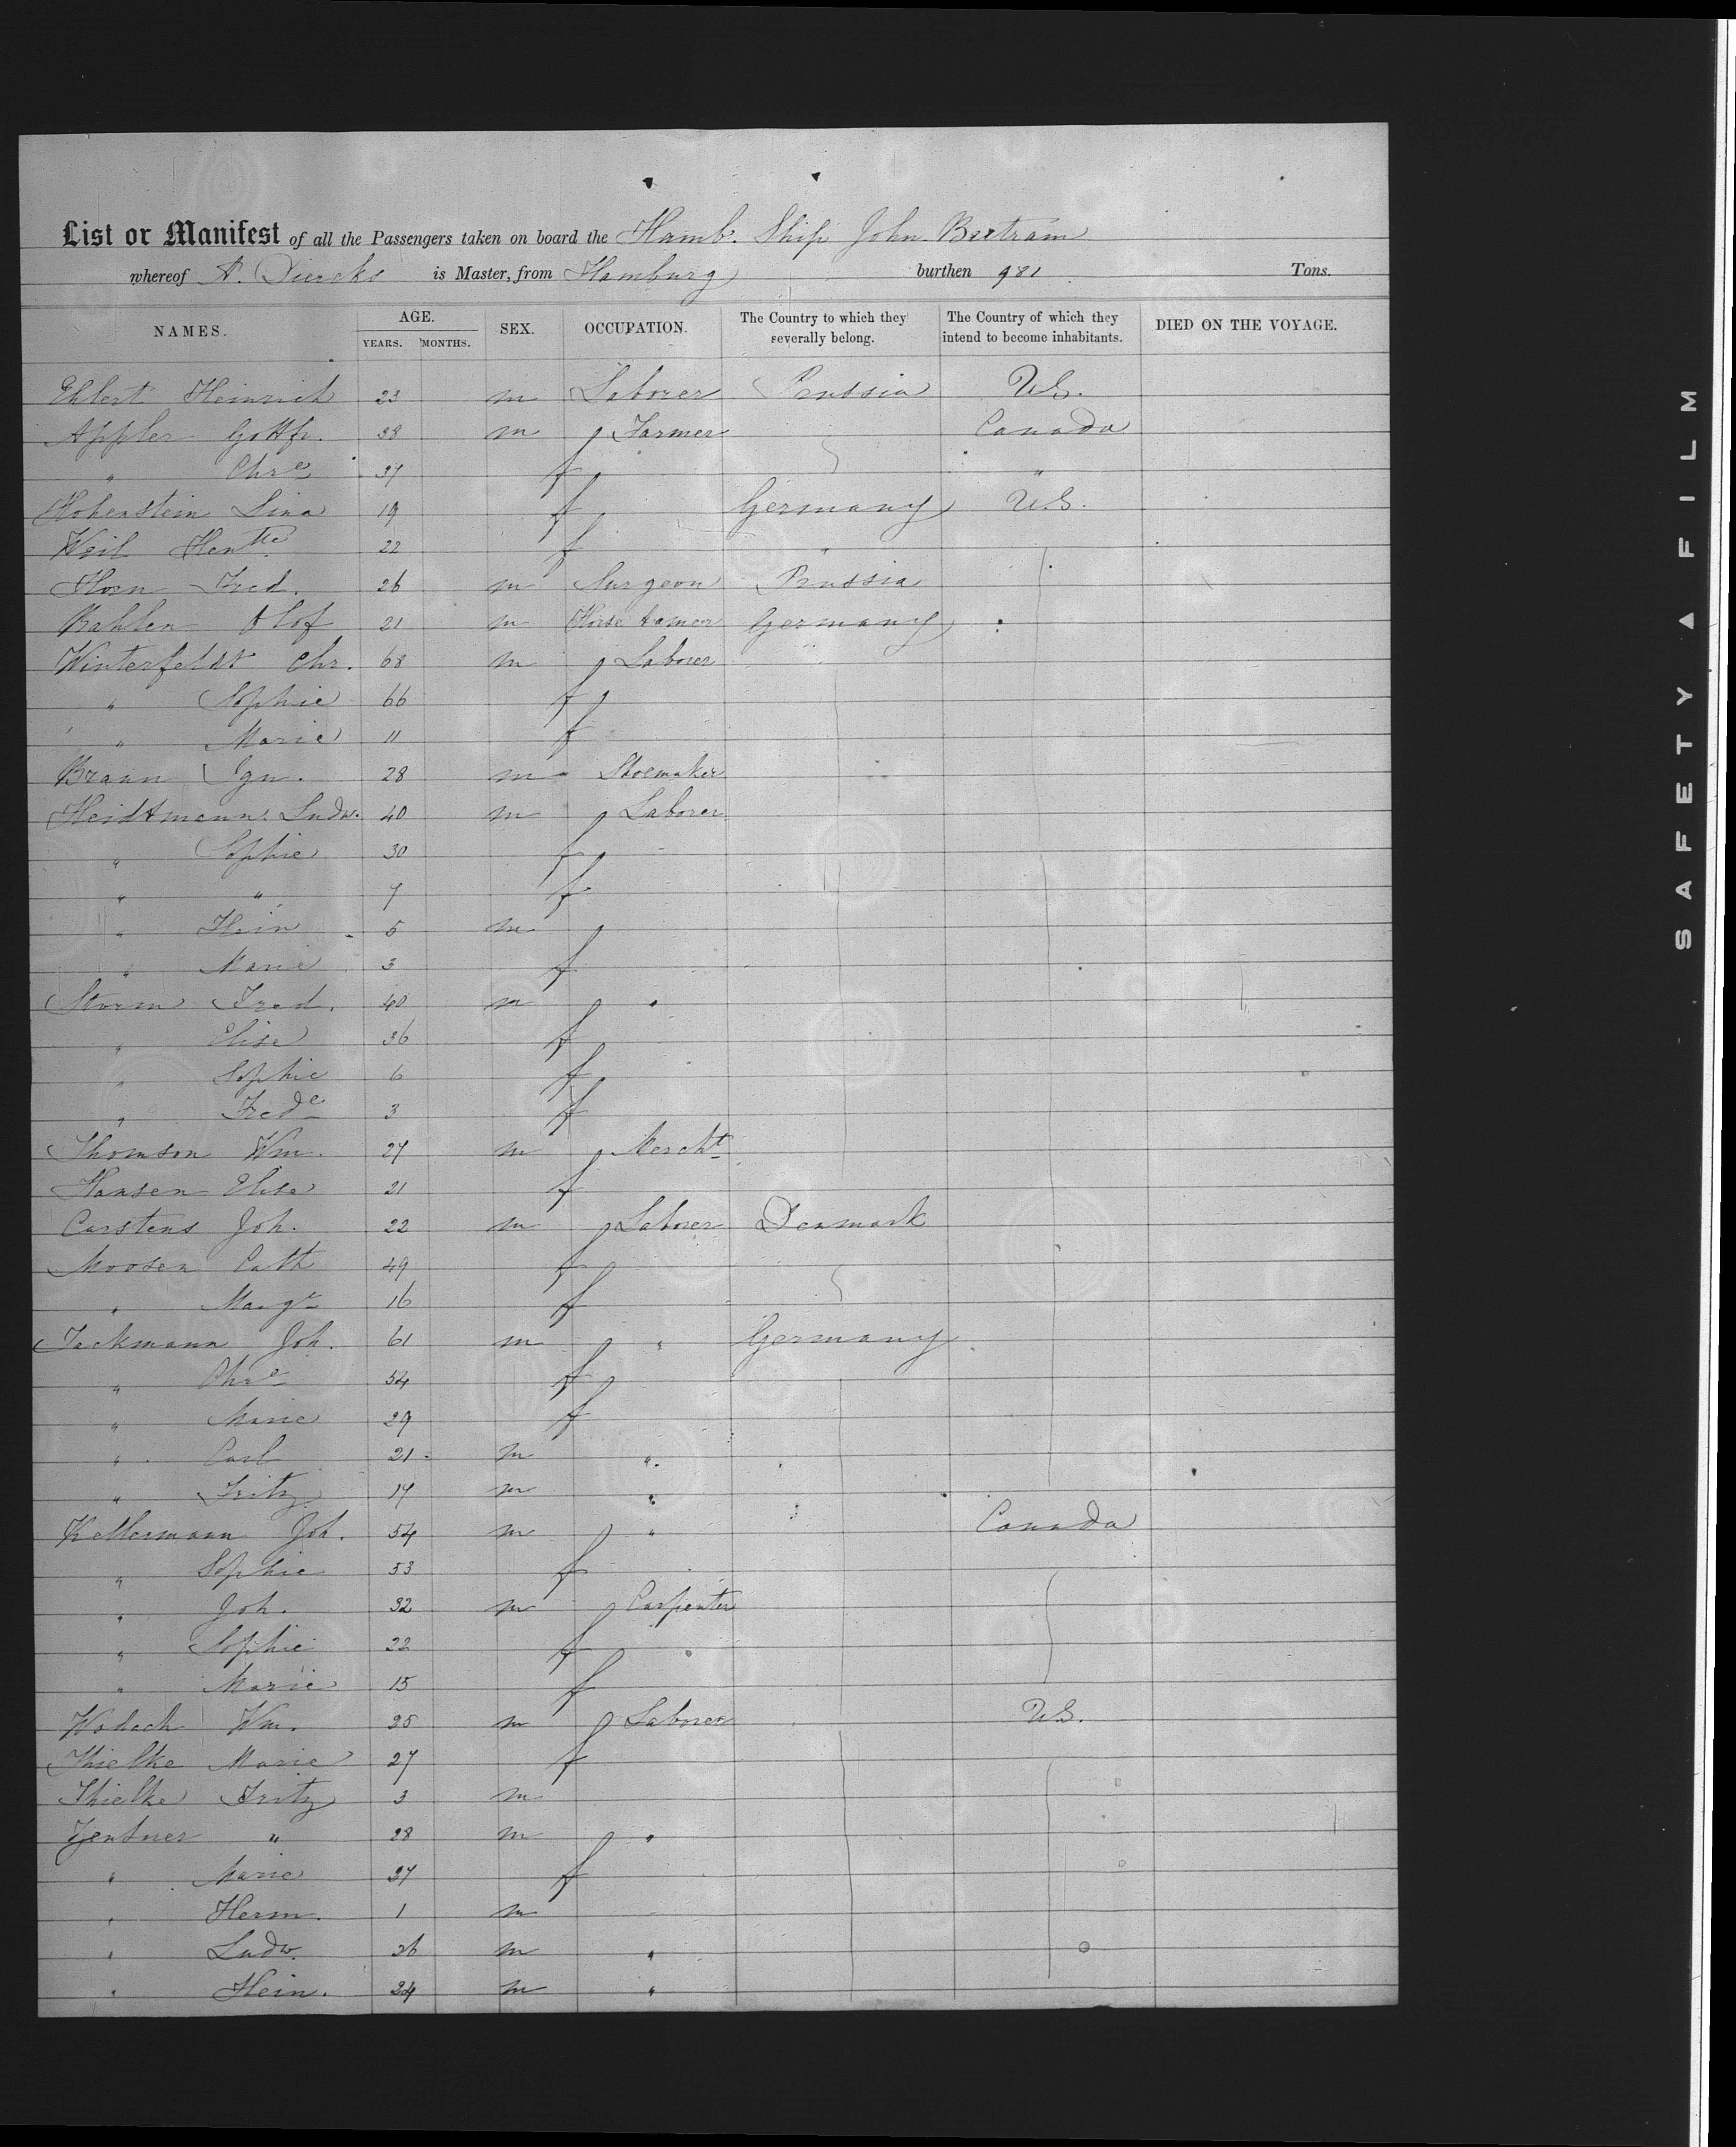 List or Manifest of all the Passengers taken on board the Hamb. Ship John Bertram
whereof A. Diercks is Master, from Hamburg burthen 981 Tons.
NAMES. AGE. YEARS. MONTHS. SEX. OCCUPATION. The Country to which they severally belong. The Country of which they intend to become inhabitants. DIED ON THE VOYAGE.
Ehlert Heinrich 23 m Laborer Prussia U.S.
Appler Gottfr. 38 m Farmer Canada
" Chre 37 f "
Hohenstein Lina 19 f Germany U.S.
Weil Hentte 22 f "
Horn Fred. 26 m Surgeon Prussia
Bahlen Olof 21 m Horse tamer Germany
Winterfeldt Chr. 68 m Laborer
" Sophie 66 f
" Marie 11 f
Braun Ign. 28 m Shoemaker
Heidtmann Ludw. 40 m Laborer
" Sophie 30 f
" " 7 f
" Hein 5 m
" Marie 3 f
Storm Fred. 40 m "
" Elise 36 f
" Sophie 6 f
" Frede 3 f
Thomson Wm. 27 m Mercht
Hansen Elise 21 f
Carstens Joh. 22 m Laborer Denmark
Moosen Cath 49 f
" Margt 16 f
Tackmann Joh. 61 m " Germany
" Chre 54 f
" Marie 29 f
" Carl 21 m "
" Fritz 17 m "
Kellermann Joh. 54 m " Canada
" Sophie 53 f
" Joh. 32 m Carpenter
" Sophie 22 f
" Marie 15 f
Wobeck Wm. 25 m Laborer U.S.
Thielke Marie 27 f
Thielke Fritz 3 m
Zentner " 28 m "
" Marie 27 f
" Herm. 1 m
" Ludw. 26 m "
" Hein. 24 m "
SAFETY ▲ FILM